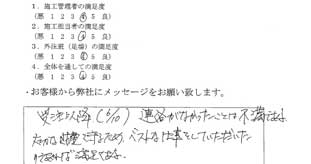 1．施工管理者の満足度
(悪 1 2 3 4 5 良)
2．施工担当者の満足度
(悪 1 2 3 4 5 良)
3．外注班（足場）の満足度
(悪 1 2 3 4 5 良)
4．全体を通しての満足度
(悪 1 2 3 4 5 良)
・お客様から弊社にメッセージをお願い致します。
受注以降（6/10）連絡がなかったことは不満である。
できるため、ベストな仕事をしていただいた
満足である。